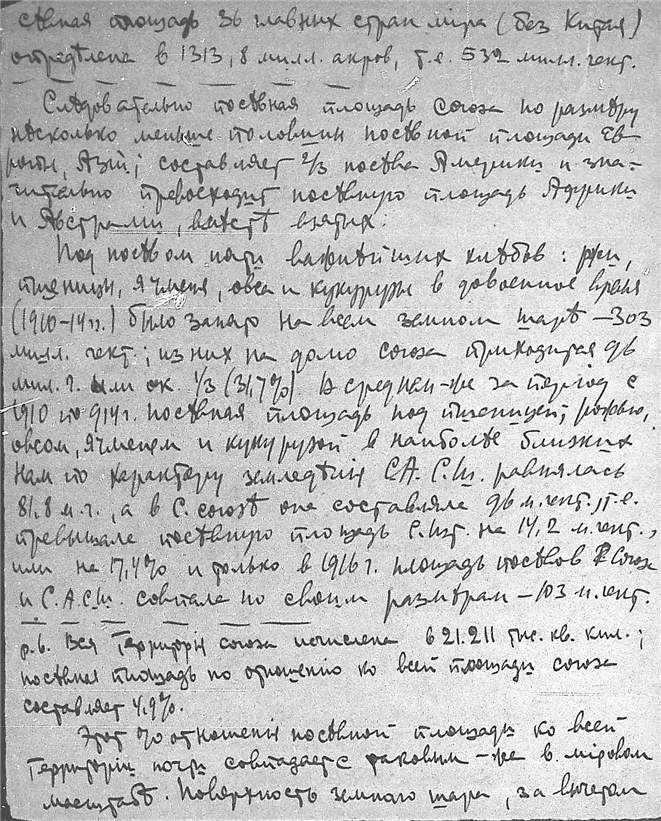 сѣвная площадь 36 главных стран міра (без Китая)
опредѣлена в 1313,8 милл. акров, т.е. 532 милл. гект.
Слѣдовательно посѣвная площадь Союза по размѣру
нѣсколько меньше половины посѣвной площади Ев
ропы, Азіи; составляет 2/3 посѣва Америки и зна-
чительно превосходит посѣвную площадь Африки
и Австраліи, вмѣстѣ взятых.
Под посѣвом пяти важнѣйших хлѣбов: ржи,
пшеницы, ячменя, овса и кукурузы в довоенное время
(1910-14гг.) было занято на всем земном шарѣ – 303
милл. гект.; из них на долю союза приходится 96
мил. г. или ок. 1/3 (31,7%). В среднем-же за період с
1910 по 914г. посѣвная площадь под пшеницей, рожью,
овсом, ячменем и кукурузой в наиболѣе близких
нам по характеру земледѣлія С.А.С.Ш. равнялась
81,8 м.г., а в С. союзѣ она составляла 96 м.гект., т.е.
превышала посѣвную площадь С.Шт. на 14,2 м.гект.,
или на 17,4% и только в 1916г. площадь посѣвов Союза
и С.А.С.Ш. совпала по своим размѣрам – 103 м.гект.
р.б. Вся территорія союза исчислена в 21.211 тыс. кв. кил.;
посѣвная площадь по отношенію ко всей площади союза
составляет 4,9%.
Этот % отношенія посѣвной площади ко всей
территоріи почти совпадает с таковым-же в міровом
масштабѣ. Поверхность земного шара, за вычетом